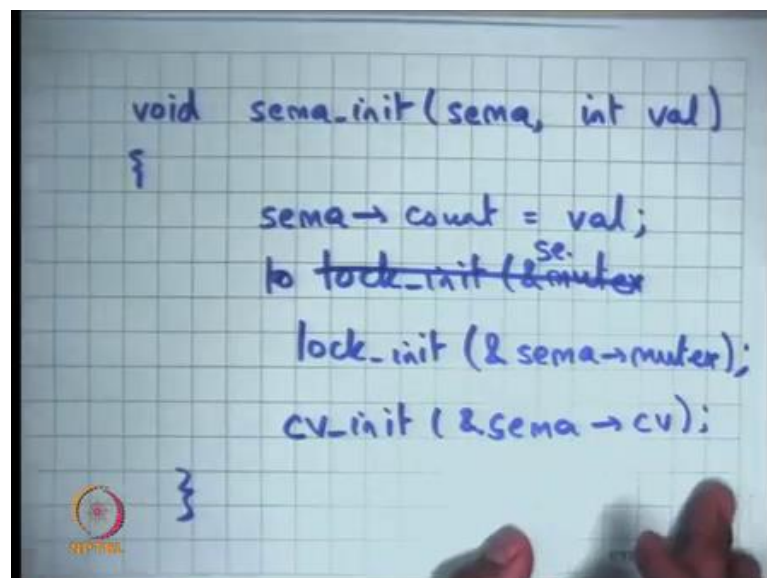 void sema_init(sema, int val)
{
sema→ count = val;
se.
lo lock_init(&mutex
lock_init (&sema→mutex);
cv_init (&sema→cv);
}
NPTEL